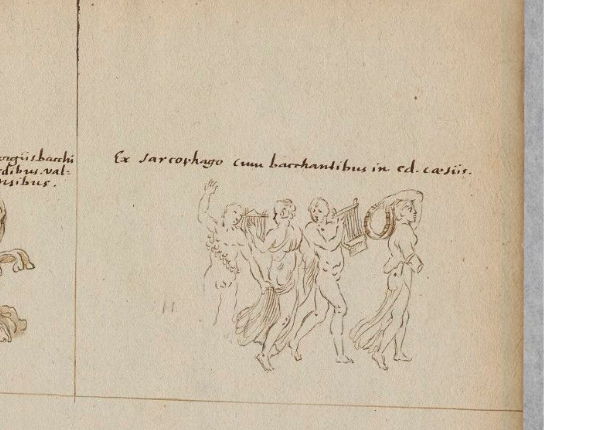 orgiis bacchi
dibus. val-
nsibus.
Ex sarcophago cum bacchantibus in ed. cæsiis.